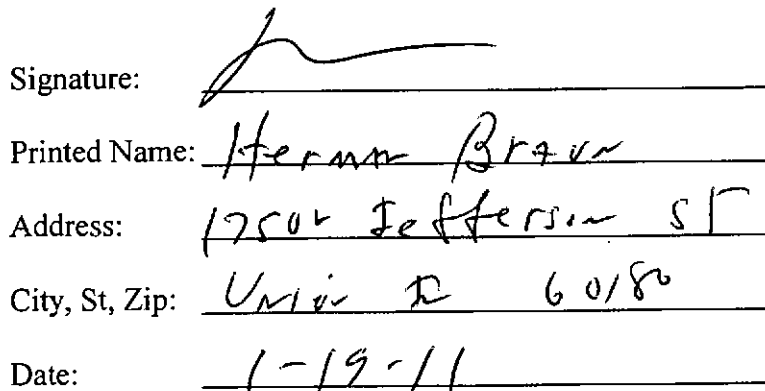 Signature:
Printed Name: Herman Braun
Address: 17502 Jefferson ST
City, St, Zip: Union IL 60180
Date: 1-19-11